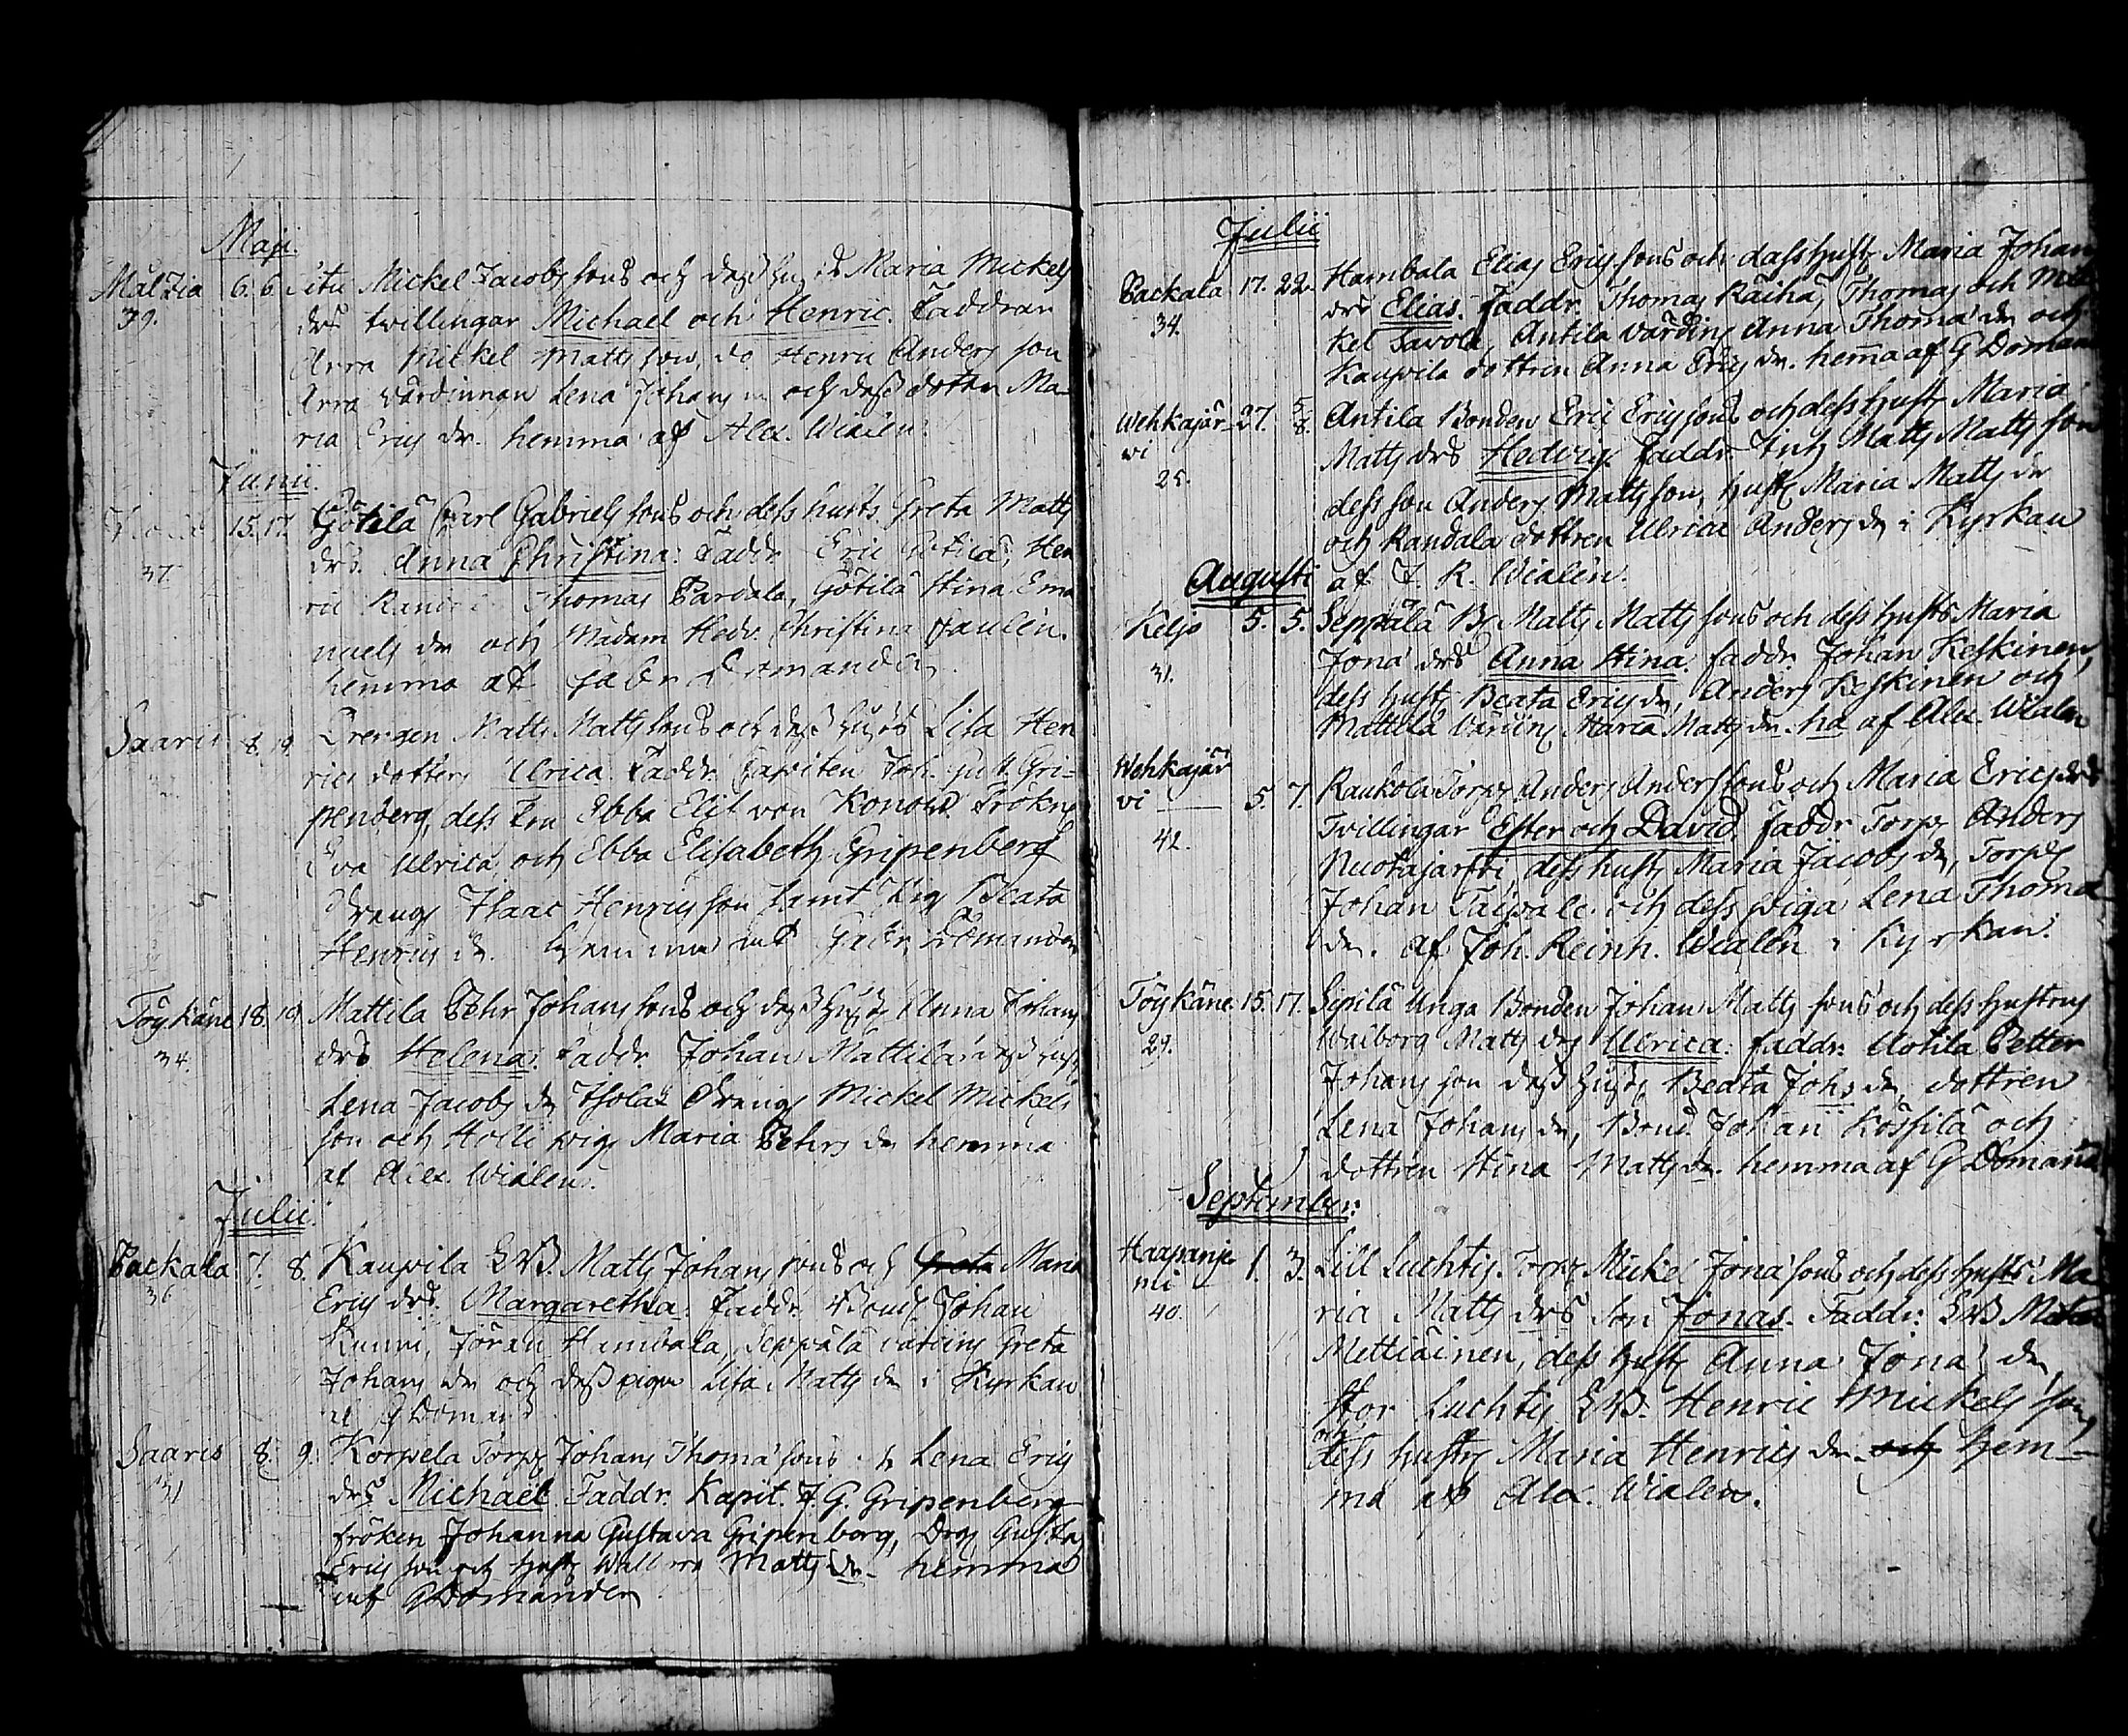 Maji.
Maltia 6. 6. Mickel Jacobs sons och dess Maria Mickels
39. drs tvillingar Michael och Henric. Faddrar
Arra Mickel Matts son, do Henric Anders son
Arra värdinnan Lena Johans och dess dotter Ma-
ria Erics dr. hemma af Alex. Wialen.
Junii.
15. 17. Götilä Carl Gabriels sons och dess hust. Greta Matts
37. drs. Anna Christina: Faddr. Eric Götilä, Hen
ric Thomas Pardala, Götilä Stina Ema
nuels dr och Madam Hedv. Christina Paulin.
hemma af Gabr. Domander
Saaris 8. 19 Drengen Matts Mattssons och dess Lisa Hen
rics dotters Ulrica. Faddr. Capiten Joh. Gust. Gri-
penberg, dess Fru Ebba Elis. von Konow. Frökn
Eva Ulrica, och Ebba Elisabeth Gripenberg
Dreng Isaac Henrics son samt Pig. Beata
Henrics dr. hemma af Gabr. Domander
Töykäne 18. 19 Mattila Pehr Johans sons och dess Anna Johans
34. drs Helena: Faddr. Johan Mattila dess hust
Lena Jacobs dr Isola Dreng Mickel Mickels
son och Holli pig. Maria Pehrs dr hemma
af Alex. Wialen.
Julii.
Packala 7. 8. Kaupila LB. Matts Johans sons och Greta Maria
36 Erics drs. Margaretha. Faddr. Bond. Johan
Kunni, Jöran Hambala, Seppälä värdin Greta
Johans dr och dess pigan Lisa Matts dr i Kyrkan
af G Domand
Saaris 8. 9. Korpela Torp. Johans Thomæ sons Lena Erics
31 drs Michael. Faddr. Kapit. J. G. Gripenberg
fröken Johanna Gustava Gripenberg, Drg Gustaf
Erics son och hust Matts dr. hemma
af G Domander
Julii
Packala 17. 22. Hambala Elias Erics sons och dess hust. Maria Johans
34. drs Elias. Faddr. Thomas Räihä, Thomas och Mic
kel Savola, Antila värdin Anna Thomæ dr och
Kaupila dottren Anna Erics dr. hema af G Doman
Wehkajär 27. 5/8. Antila Bonden Eric Erics sons och dess hust Maria
vi
25. Matts drs Hedvig. Faddr. Matts Matts son
dess son Anders Matts son, hust Maria Matts dr
och Randala dottren Ulrica Anders dr i Kyrkan
af J. R. Wialen.
Augusti
Keljo 5. 5. Seppälä B. Matts Matts sons och dess husts Maria
31. Jonæ drs Anna Stina. faddr. Johan Keskinen,
dess hust Beata Erics dr, Anders Keskinen och
Mattila Maria Matts dr. ha af Alex. Wialen
Wehkajär
vi 5. 7. Raukola Torp. Anders Anders sons och Maria Erics drs
42. Tvillingar Ester och David. Faddr Torp. Anders
Nuotajärfvi, dess hust Maria Jacobs dr, Torp.
Johan Taipale. och dess piga Lena Thomæ
dr. af Joh. Reinh. Wialen i Kyrkan.
Töykäne 15. 17. Sipilä Unga Bonden Johan Matts sons och dess hustrus
29. Walborg Matts drs Ulrica: faddr: Uotila Petter
Johans son dess hust Beata Johs dr, dottren
Lena Johans dr, Bond. Johan Kössilä och
dottren Stina Matts dr. hemma af G Doman
September:
Haapanje 1. 3. Lill Luchtis Torp Mickel Jonæ sons och dess husts Ma
mi
40. ria Matts drs son Jonas. Faddr: LB
Mettiäinen, dess hust Anna Jonæ dr
Stor Luchtis LB. Henric Mickels son,
och
dess hustr Maria Henrics dr. och hem-
ma af Alex. Wialen.